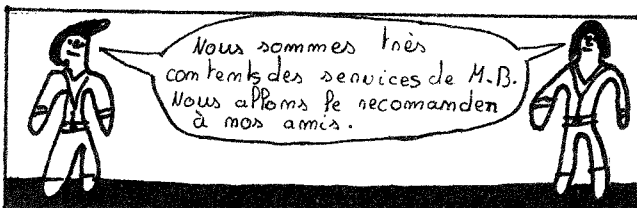 Nous sommes très
contents des services de M.B.
Nous allons le recomander
à nos amis.